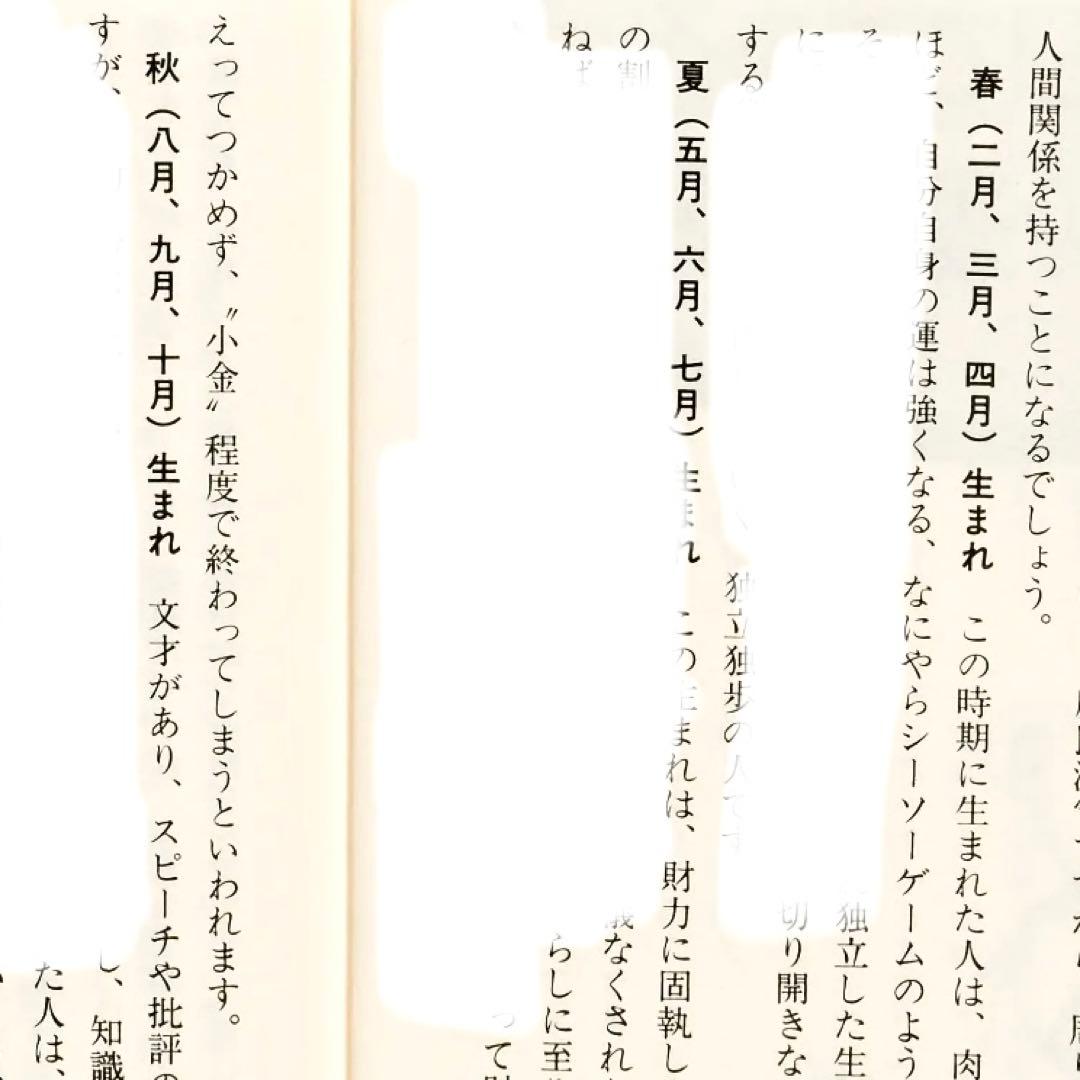 人間関係を持つことになるでしょう。
春（二月、三月、四月）生まれ　この時期に生まれた人は、肉
ほど、自分自身の運は強くなる、なにやらシーソーゲームのよう
そ　独立した生
に　切り開きな
する　独立独歩の人です
夏（五月、六月、七月）生まれ　この生まれは、財力に固執し
の割　儀なくされ
ねば　らしに至
って
えってつかめず、〝小金〟程度で終わってしまうといわれます。
秋（八月、九月、十月）生まれ　文才があり、スピーチや批評の
すが、　し、知識
た人は、